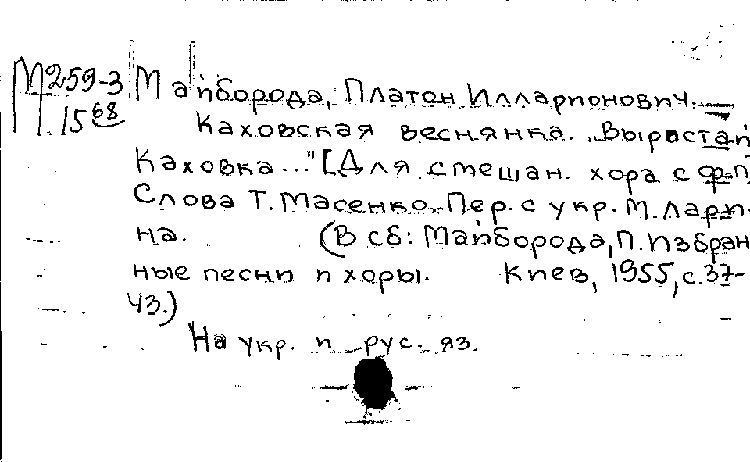 М259-3 Майборода, Платон Илларионович.
1568 Каховская веснянка. „Вырастай
Каховка..." [Для смешан. хора с ф-п
Слова Т. Масенко. Пер. с укр. М. Ларм-
на. (В сб: Майборода, П. Избран
ные песни и хоры. Киев, 1955, с. 37-
43.)
На укр. и рус. яз.